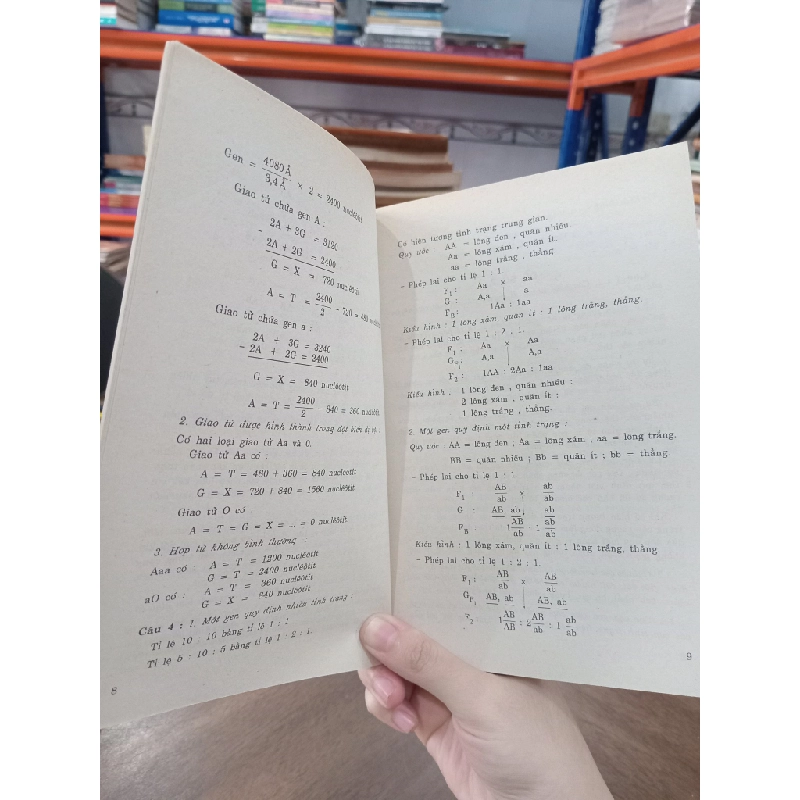 Gen = 4080Å / 3,4Å × 2 = 2400 nuclêôtit
Giao tử chứa gen A :
2A + 3G = 3120
- 2A + 2G = 2400
G = X = 720 nuclêôtit
A = T = 2400/2 - 720 = 480 nuclêôtit
Giao tử chứa gen a :
2A + 3G = 3240
- 2A + 2G = 2400
G = X = 840 nuclêôtit
A = T = 2400/2 - 840 = 360 nuclêôtit
2. Giao tử được hình thành trong đột biến dị bội :
Có hai loại giao tử Aa và O.
Giao tử Aa có :
A = T = 480 + 360 = 840 nuclêôtit
G = X = 720 + 840 = 1560 nuclêôtit
Giao tử O có
A = T = G = X = ... = 0 nuclêôtit
3. Hợp tử không bình thường
Aaa có : A = T = 1200 nuclêôtit
G = T = 2400 nuclêôtit
aO có : A = T = 360 nuclêôtit
G = X = 840 nuclêôtit
Câu 4 : 1. Một gen quy định nhiều tính trạng :
Tỉ lệ 10 : 10 bằng tỉ lệ 1 : 1
Tỉ lệ 5 : 10 : 5 bằng tỉ lệ 1 : 2 : 1.
8
Có hiện tượng tính trạng trung gian.
Quy ước AA = lông đen, quăn nhiều.
Aa = lông xám, quăn ít.
aa = lông trắng, thẳng
- Phép lai cho tỉ lệ 1 : 1.
F1 : Aa × aa
G : A,a a
FB : 1Aa : 1aa
Kiểu hình : 1 lông xám, quăn ít : 1 lông trắng, thẳng.
- Phép lai cho tỉ lệ 1 : 2 : 1.
F1 : Aa × Aa
GF1 A,a A,a
F2 : 1AA : 2Aa : 1aa
Kiểu hình : 1 lông đen , quăn nhiều :
2 lông xám , quăn ít :
1 lông trắng , thẳng.
2. Một gen quy định một tính trạng :
Quy ước : AA = lông đen ; Aa = lông xám , aa = lông trắng.
BB = quăn nhiều ; Bb = quăn ít ; bb = thẳng.
- Phép lai cho tỉ lệ 1 : 1
F1 : AB/ab × ab/ab
G : AB, ab ab
FB : 1 AB/ab : 1 ab/ab
Kiểu hình : 1 lông xám, quăn ít : 1 lông trắng, thẳng
- Phép lai cho tỉ lệ 1 : 2 : 1.
F1 : AB/ab × AB/ab
GF1 AB, ab AB, ab
F2 : 1 AB/AB : 2 AB/ab : 1 ab/ab
9